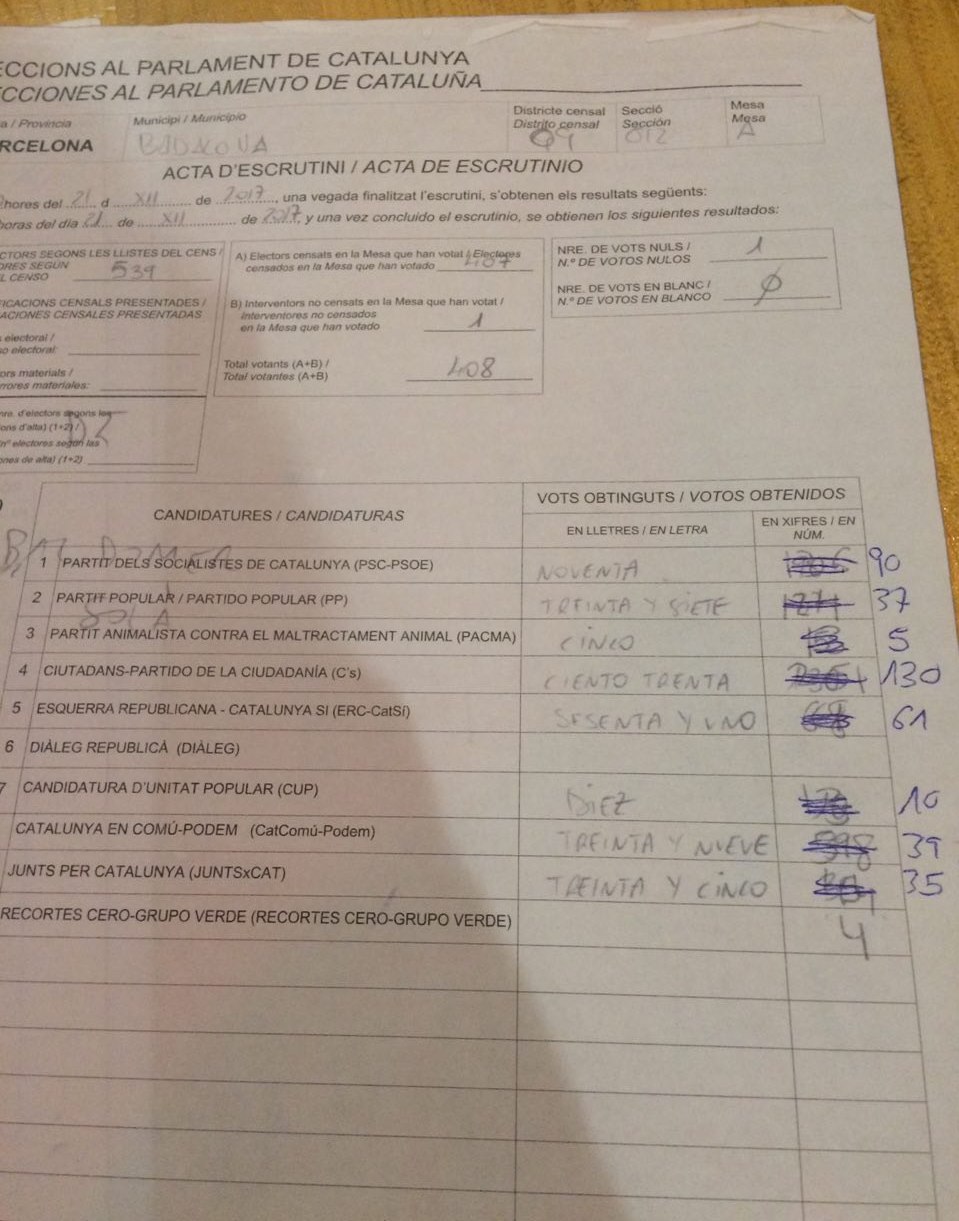 ECCIONS AL PARLAMENT DE CATALUNYA
CCIONES AL PARLAMENTO DE CATALUÑA
a / Provincia
RCELONA
Municipi / Municipio
BADALONA
Districte censal
Distrito censal
09
Secció
Sección
012
Mesa
Mesa
A
ACTA D'ESCRUTINI / ACTA DE ESCRUTINIO
hores del 21 d XII de 2017, una vegada finalitzat l'escrutini, s'obtenen els resultats següents:
horas del día 21 de XII de 2017, y una vez concluido el escrutinio, se obtienen los siguientes resultados:
CTORS SEGONS LES LLISTES DEL CENS /
ORES SEGÚN
L CENSO 539
FICACIONS CENSALS PRESENTADES /
ACIONES CENSALES PRESENTADAS
s electoral /
so electoral:
ors materials /
rrores materiales:
nre. d'electors segons les
ions d'alta) (1+2) /
nº electores según las
ones de alta) (1+2)
A) Electors censats en la Mesa que han votat / Electores
censados en la Mesa que han votado 407
B) Interventors no censats en la Mesa que han votat /
Interventores no censados
en la Mesa que han votado 1
Total votants (A+B) /
Total votantes (A+B) 408
NRE. DE VOTS NULS /
N.º DE VOTOS NULOS 1
NRE. DE VOTS EN BLANC /
N.º DE VOTOS EN BLANCO Ø
CANDIDATURES / CANDIDATURAS
VOTS OBTINGUTS / VOTOS OBTENIDOS
EN LLETRES / EN LETRA
EN XIFRES / EN
NÚM.
1 PARTIT DELS SOCIALISTES DE CATALUNYA (PSC-PSOE) NOVENTA 90
2 PARTIT POPULAR / PARTIDO POPULAR (PP) TREINTA Y SIETE 37
3 PARTIT ANIMALISTA CONTRA EL MALTRACTAMENT ANIMAL (PACMA) CINCO 5
4 CIUTADANS-PARTIDO DE LA CIUDADANÍA (C's) CIENTO TRENTA 130
5 ESQUERRA REPUBLICANA - CATALUNYA SI (ERC-CatSí) SESENTA Y UNO 61
6 DIÀLEG REPUBLICÀ (DIÀLEG)
7 CANDIDATURA D'UNITAT POPULAR (CUP) DIEZ 10
CATALUNYA EN COMÚ-PODEM (CatComú-Podem) TREINTA Y NUEVE 39
JUNTS PER CATALUNYA (JUNTSxCAT) TREINTA Y CINCO 35
RECORTES CERO-GRUPO VERDE (RECORTES CERO-GRUPO VERDE) 4